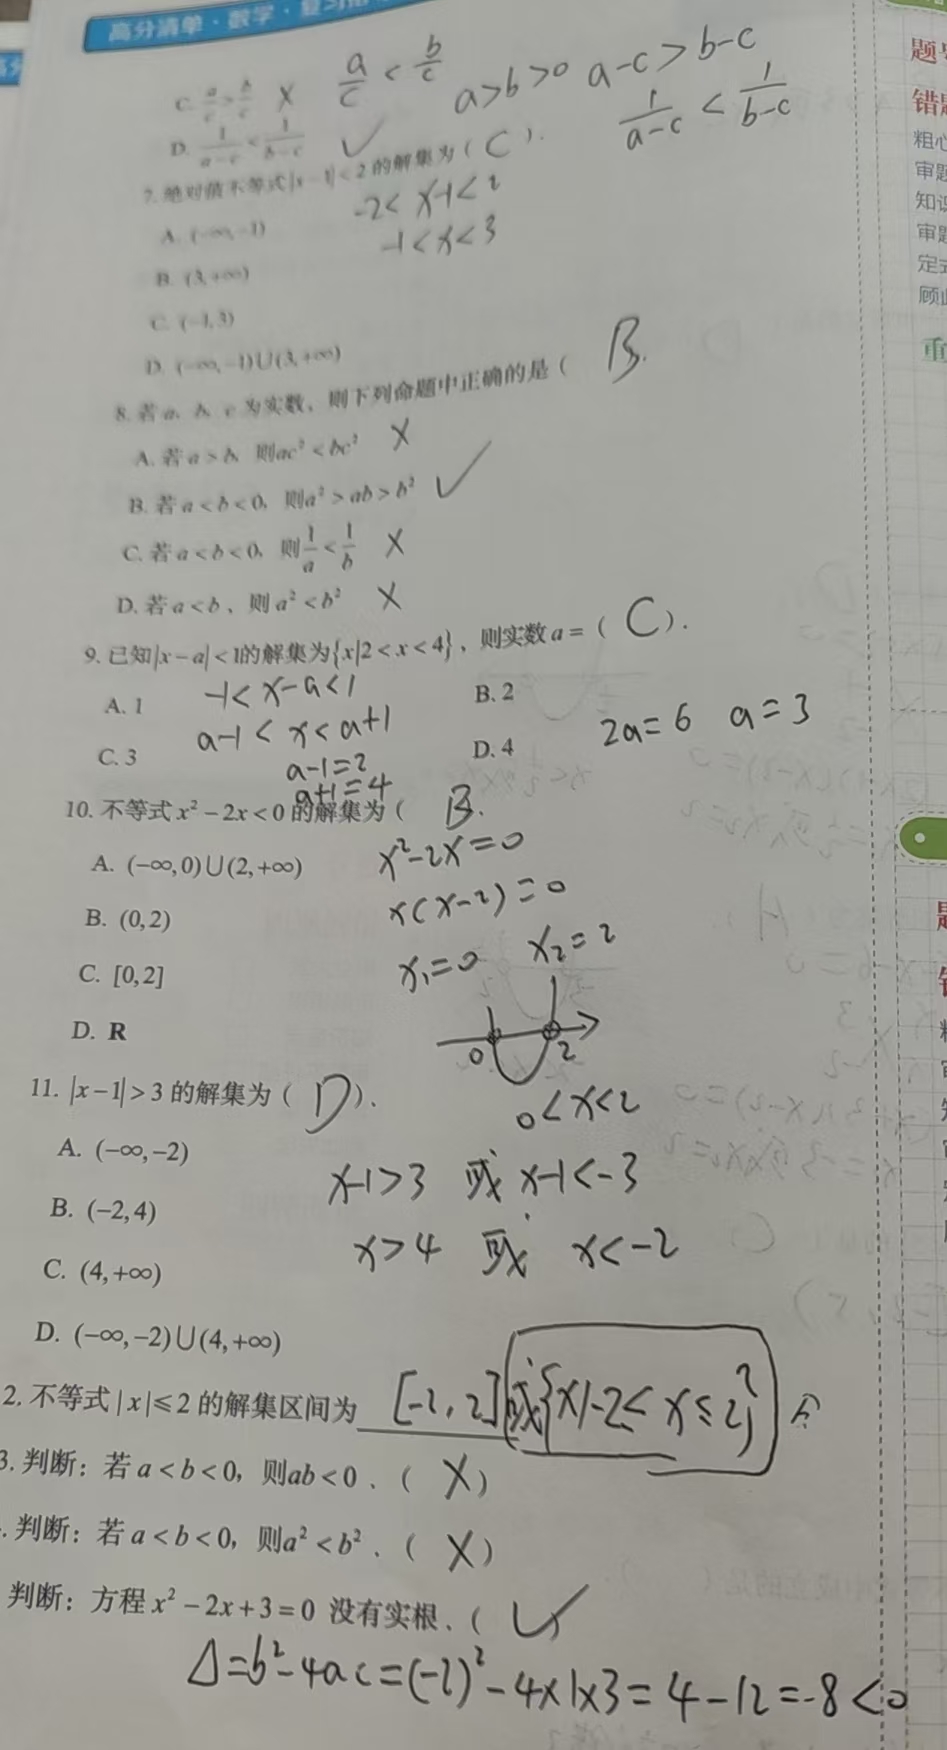 高分清单·数学·复习
C. a/c > b/c × a/c < b/c a>b>0 a-c>b-c
D. 1/(a-c) < 1/(b-c) ✓ 1/(a-c) < 1/(b-c)
7. 绝对值不等式|x-1|<2的解集为( C ).
-2<x-1<2
A. (-∞,-1) -1<x<3
B. (3,+∞)
C. (-1,3)
D. (-∞,-1)∪(3,+∞)
8. 若a、b、c为实数，则下列命题中正确的是( B.
A. 若a>b, 则ac²<bc² ×
B. 若a<b<0, 则a²>ab>b² ✓
C. 若a<b<0, 则1/a<1/b ×
D. 若a<b、则a²<b² ×
9. 已知|x-a|<1的解集为{x|2<x<4}，则实数a=( C ).
A. 1 -1<x-a<1 B. 2
C. 3 a-1<x<a+1 D. 4 2a=6 a=3
a-1=2
a+1=4
10. 不等式x²-2x<0的解集为( B.
A. (-∞,0)∪(2,+∞) x²-2x=0
B. (0,2) x(x-2)=0
C. [0,2] x₁=0 x₂=2
D. R 0 2
11. |x-1|>3的解集为( D ). 0<x<2
A. (-∞,-2) x-1>3 或 x-1<-3
B. (-2,4) x>4 或 x<-2
C. (4,+∞)
D. (-∞,-2)∪(4,+∞)
2. 不等式|x|≤2的解集区间为 [-2,2]或{x|-2≤x≤2}
3. 判断：若a<b<0，则ab<0．( × )
. 判断：若a<b<0，则a²<b²．( × )
判断：方程x²-2x+3=0 没有实根．( ✓
Δ=b²-4ac=(-2)²-4×1×3=4-12=-8<0
题
错题
粗心
审题
知识
审题
定
顾
重